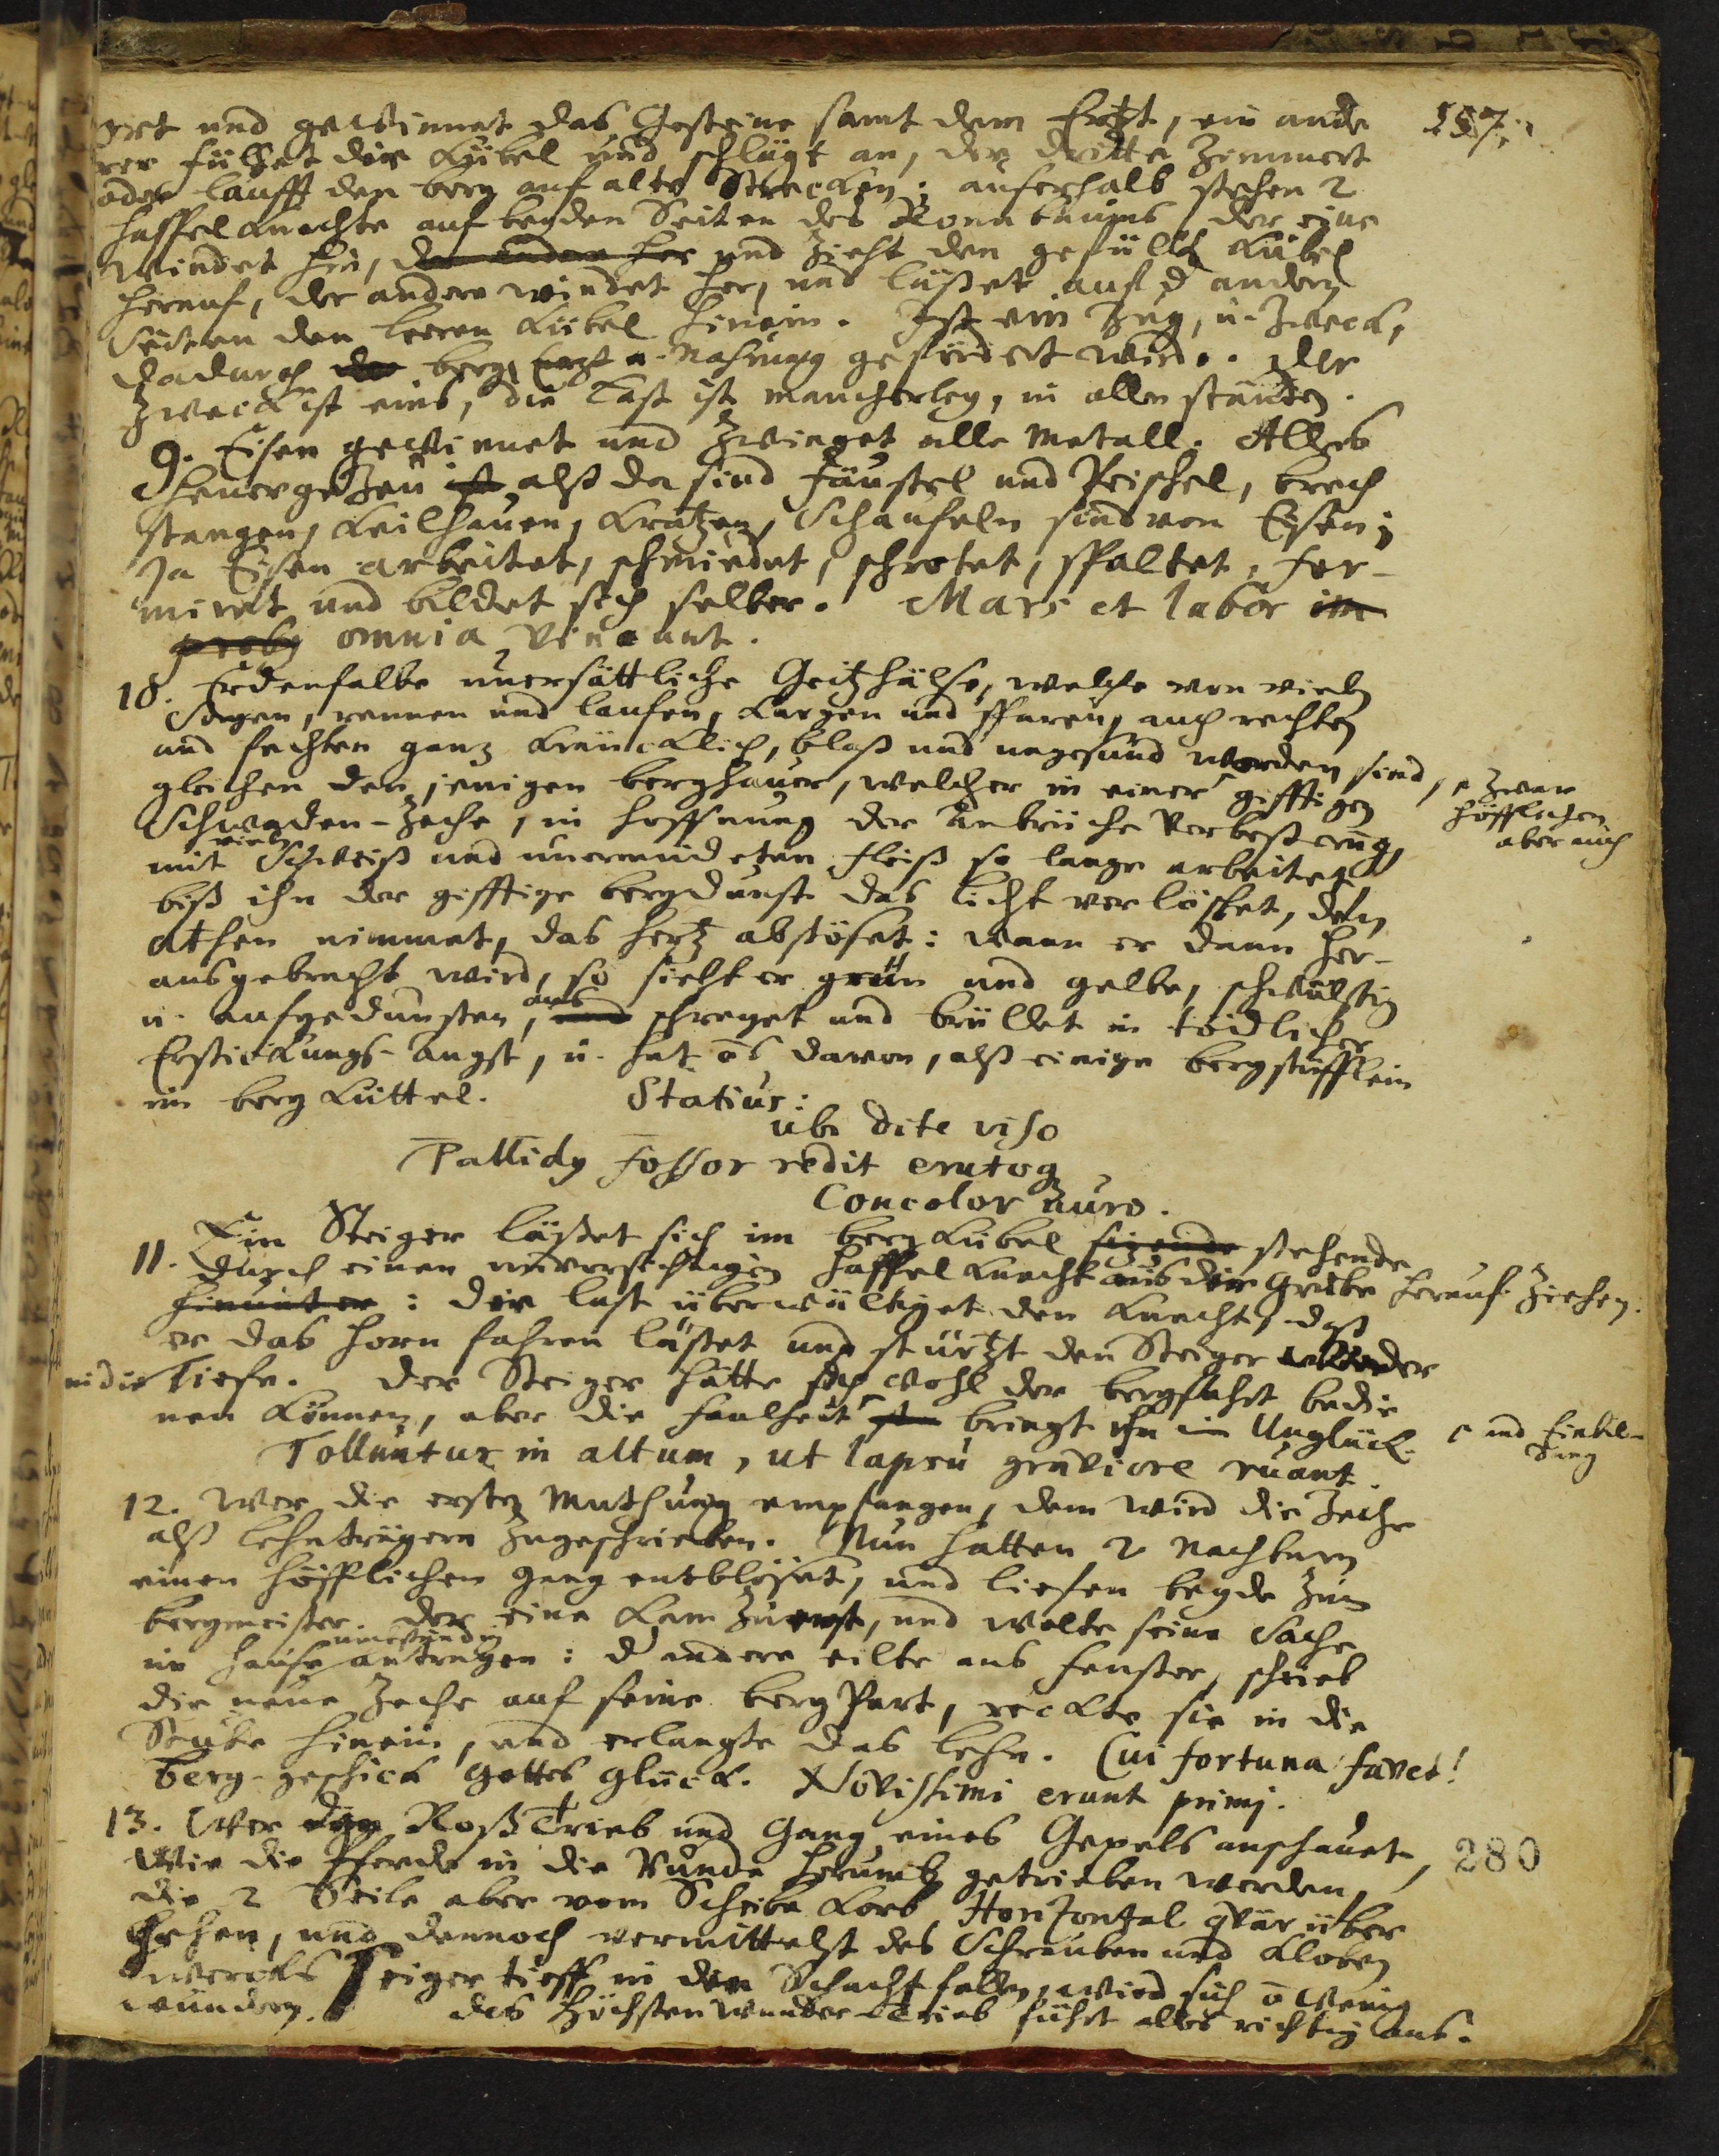 157.
get und gewinnet das Gesteine samt dem Ertzt, ein ande
rer füllet die Kübel und schlägt an, der dritte zimmert
oder laufft den berg auf alte Strecken; auserhalb stehen 2
Haspelknechte auf beyden Seiten des Ronnbaums, der eine
windet hin, der andere her und zieht den gefüllt Kübel
herauf, der andere windet her, und läßet auf d andern
Seiten den leeren Kübel hinein. Ist ein Zug, u. Zweck,
dadurch berg, Ertzt u. Nahrung gefördert wird. Der
Zweck ist eins, die Last ist mancherley, in allen ständen.
9. Eisen gewinnet und zwinget alle Metall. Alles
Heuergezeu ist alß da sind Fäustel und Peischel, brech
stangen, Keilhauen, Kratzen, Schaufeln sind von Eisen;
Ja Eisen arbeitet, schmiedet, schrotet, spaltet, for-
miret und bildet sich selber. Mars et labor im
prob9 omnia vincunt.
10. Erdenfalbe unersättliche Geitzhälse, welche von vielen
Sorgen, rennen und laufen, Kargen und sparen, auch rechten
und fechten ganz kräncklich, blaß und ungesund worden sind,
gleichen den jenigen berghauer, welcher in einer gifftigen
zwar
höfflichen
aber auch
Schwaden-Zeche, in hoffnung der Anbrüche Verbeßerung,
mit vielen Schweiß und unermüdeten fleiß so lange arbeitet,
biß ihn der gifftige bergdunst das Licht verlöschet, den
Athen nimmet, das Hertz abstöset: wann er dann her-
ausgebracht wird, so sieht er grün und gelbe, schwülstig
u. aufgedunsten, und schreyet und brüllet in tödlicher
Erstickungs-Angst, u. hat davon, alß einige bergstufflein
im berg Küttel. Statius:
ubi dite viso
Pallid9 fossor redit erutoq
Concolor auro.
11. Ein Steiger läßet sich im berg Kübel sizende stehende
durch einen unvorsichtigen Haspel Knecht aus der Grube herauf ziehen.
hinunter: die last überwältiget den Knecht, daß
er das Horn fahren läßet und stürtzt den Steiger wieder
in die Tiefe. Der Steiger hätte sich wohl der bergfahrt bedie
nen können, aber die Faulheit bringt ihn in Unglück.
und Einbil-
dung
Tolluntur in altum, ut lapsu graviore ruant.
12. Wer die erste Muthung empfangen, dem wird die Zeche
alß Lehnträgern zugeschrieben. Nun hatten 2 Nachbarn
einen höfflichen Gang entblöset, und liefen beyde zum
bergmeister. Der eine kam zu erst, und wolte seine Sache
im hause umständig antragen: d andere eilte ans Fenster, schrieb
die neue Zeche auf seine berg Part, reckte sie in die
Stube hinein, und erlangte das Lehn. Cui fortuna favet!
berg-geschick Gottes Glück. Novissimi erunt primi.
13. Wer den Roß Trieb und Gang eines Gepels anschauet,
280
Wie die Pferde in die Runde herumb getrieben werden,
die 2 Seile aber vom Scheibe Korb Horizontal qvär über
gehen, und dennoch vermittelst des Schrauben und Kloben
wercks Seiger tieff in den Schacht fallen, wird sich wenig
wundern. Des Höchsten wunder-Trieb führt alles richtig aus.